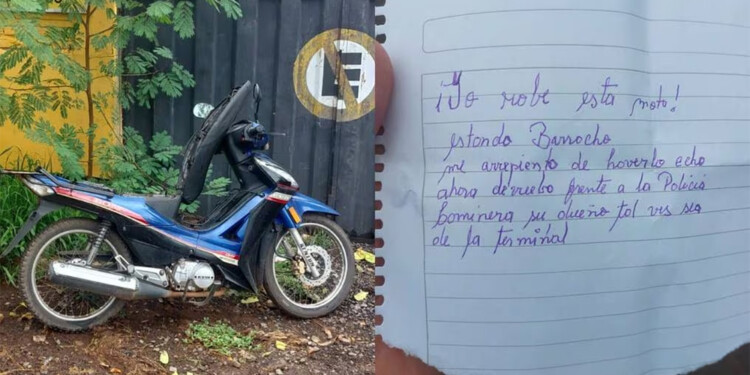 E
¡Yo robe esta moto!
estando Borracho
me arrepiento de haverlo echo
ahora devuelbo frente a la Policia
Caminera su dueño tal ves sea
de la terminal